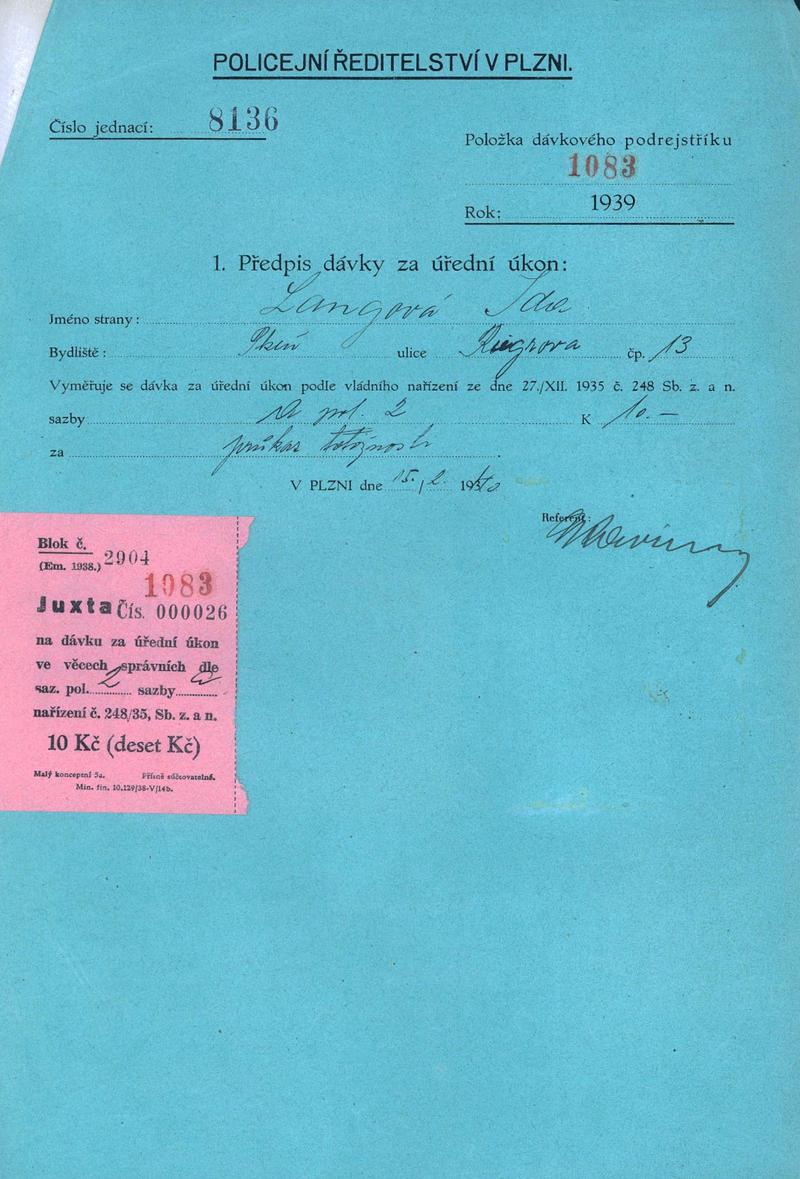 POLICEJNÍ ŘEDITELSTVÍ V PLZNI.
Číslo jednací: 8136
Položka dávkového podrejstříku
1083
Rok: 1939
1. Předpis dávky za úřední úkon:
Jméno strany: Langová Ida
Bydliště: Plzeň ulice Riegrova čp. 13
Vyměřuje se dávka za úřední úkon podle vládního nařízení ze dne 27./XII. 1935 č. 248 Sb. z. a n.
sazby A pol. 2 K 10.-
za průkaz totožnosti
V PLZNI dne 15./2. 1940
Referent:
Blok č. 2904
(Em. 1938.)
1083
Juxta Čís. 000026
na dávku za úřední úkon
ve věcech správních dle
saz. pol. 2 sazby
nařízení č. 248/35, Sb. z. a n.
10 Kč (deset Kč)
Malý konceptní 5a. Přísně súčtovatelné.
Min. fin. 10.129/38-V/14b.